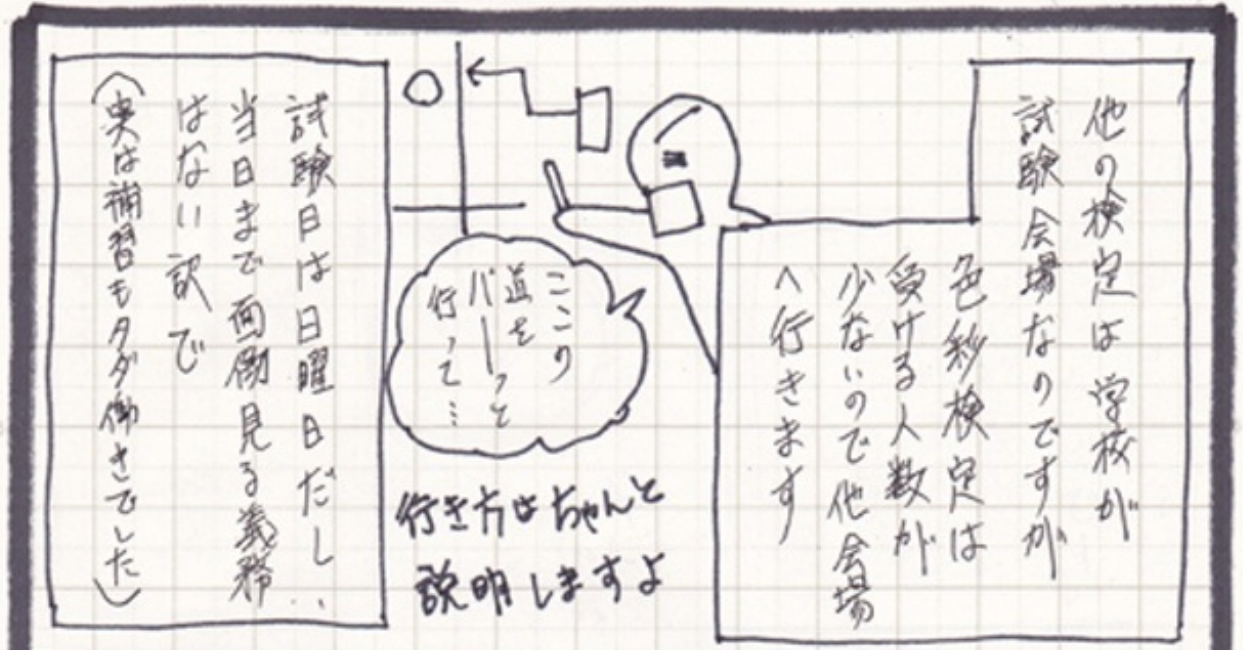 他の検定は学校が
試験会場なのですが
色彩検定は
受ける人数が
少ないので他会場
へ行きます
ここの
道を
バーーっと
行って…
行き方はちゃんと
説明しますよ
試験日は日曜日だし、
当日まで面倒見る義務
はない訳で
(実は補習もタダ働きでした)